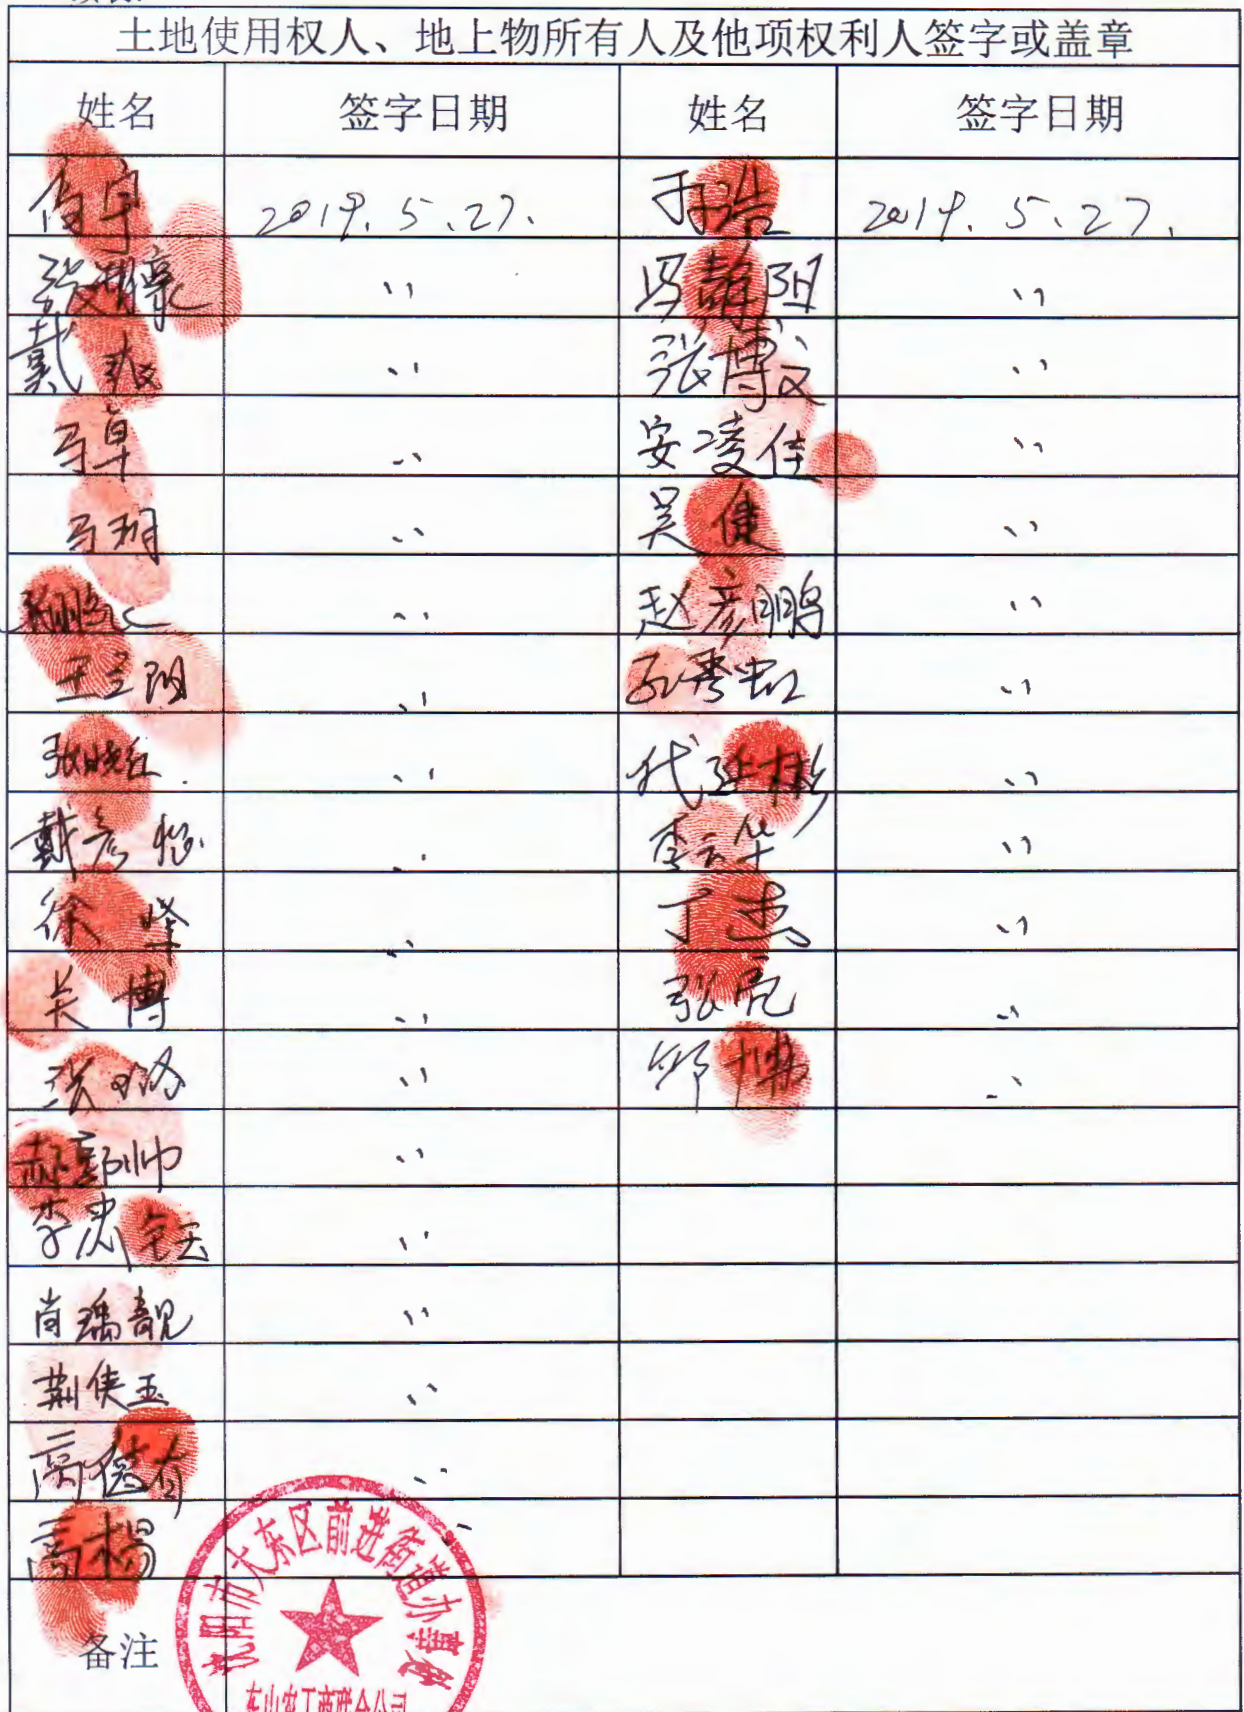 土地使用权人、地上物所有人及他项权利人签字或盖章
姓名 签字日期 姓名 签字日期
宇 2019.5.27. 于浩 2019.5.27.
张 〃 冯静阳 〃
戴 〃 张博文 〃
马卓 〃 安凌佳 〃
马明 〃 吴健 〃
〃 赵彦鹏 〃
王 阳 〃 孔秀虹 〃
张晓红 〃 代延彬 〃
戴彦 〃 李云华 〃
徐峰 〃 丁杰 〃
关博 〃 张亮 〃
张 〃 邹博 〃
郝郭帅 〃
李忠 〃
肖瑀靓 〃
荆侠玉 〃
高 〃
高杨 〃
备注
沈阳市大东区前进街道办事处
东山农工商联合公司